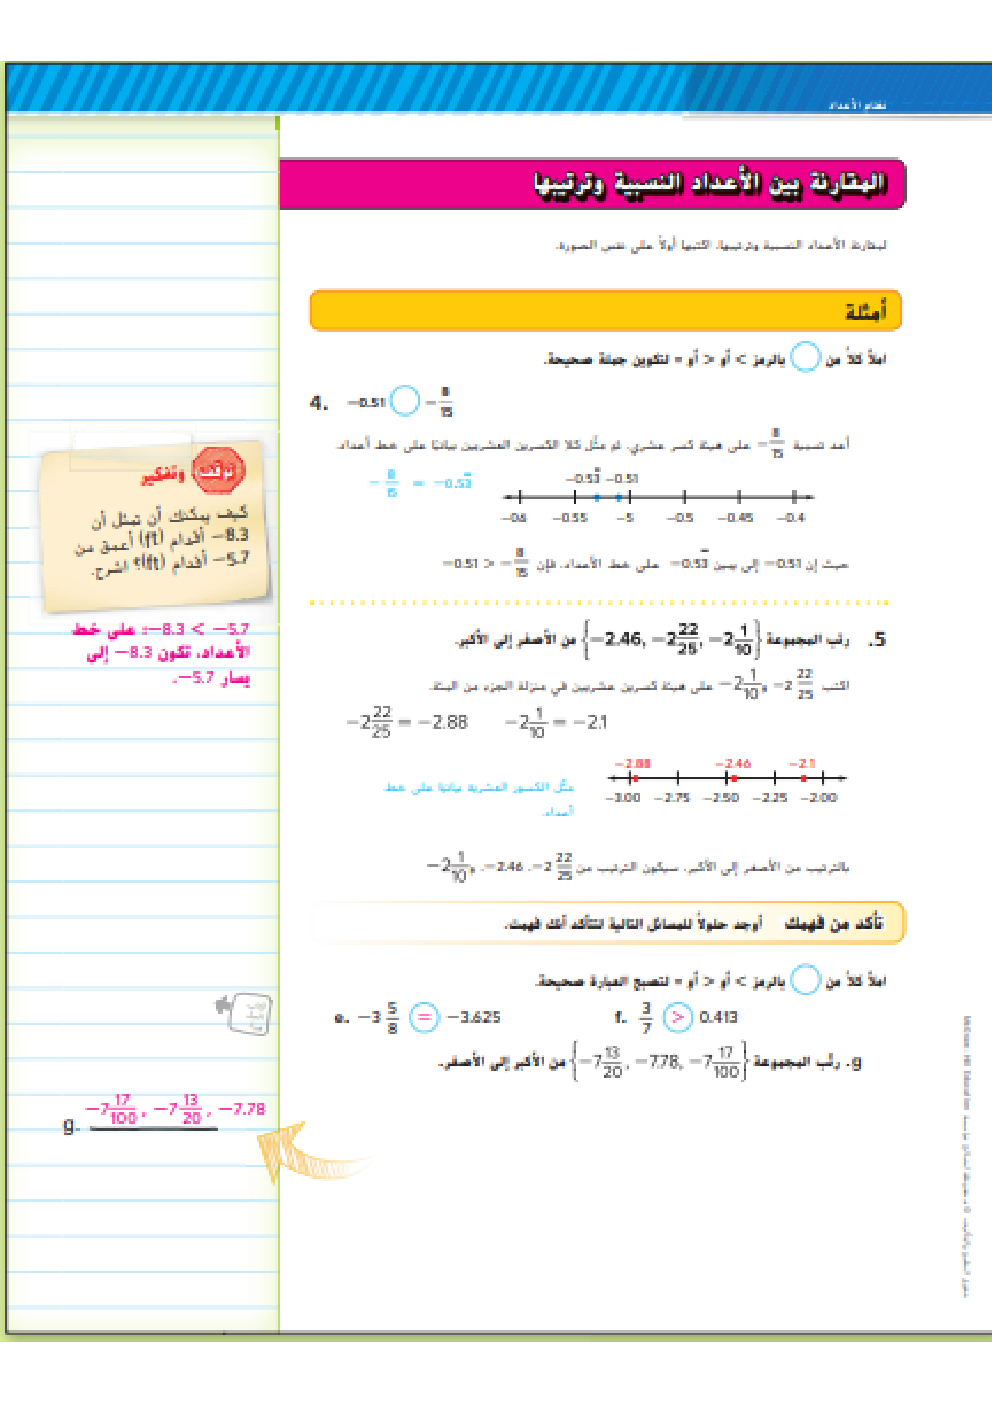 نظام الأعداد
المقارنة بين الأعداد النسبية وترتيبها
لمقارنة الأعداد النسبية وترتيبها، اكتبها أولاً على نفس الصورة.
أمثلة
املأ كلاً من ◯ بالرمز > أو < أو = لتكوين جملة صحيحة.
4. −0.51 ◯ −8/15
أعد تسمية −8/15 على هيئة كسر عشري، ثم مثّل كلا الكسرين العشريين بيانيًا على خط أعداد.
−8/15 = −0.53̅
−0.53̅ −0.51
−0.6 −0.55 −5 −0.5 −0.45 −0.4
حيث إن 0.51− إلى يمين 0.53̅− على خط الأعداد، فإن −0.51 > −8/15
5. رتب المجموعة {−2.46, −2 22/25, −2 1/10} من الأصغر إلى الأكبر.
اكتب −2 22/25 و −2 1/10 على هيئة كسرين عشريين في منزلة الجزء من المئة.
−2 22/25 = −2.88 −2 1/10 = −2.1
−2.88 −2.46 −2.1
−3.00 −2.75 −2.50 −2.25 −2.00
مثّل الكسور العشرية بيانيًا على خط
أعداد.
بالترتيب من الأصغر إلى الأكبر، سيكون الترتيب من −2 22/25، −2.46، و −2 1/10
تأكد من فهمك أوجد حلولاً للمسائل التالية لتتأكد أنك فهمت.
املأ كلاً من ◯ بالرمز > أو < أو = لتصبح العبارة صحيحة.
e. −3 5/8 = −3.625 f. 3/7 > 0.413
g. رتّب المجموعة {−7 13/20, −7.78, −7 17/100} من الأكبر إلى الأصغر.
توقف وتفكير
كيف يمكنك أن تمثل أن
−8.3 أقدام (ft) أعمق من
−5.7 أقدام (ft)؟ اشرح.
−8.3 < −5.7؛ على خط
الأعداد، تكون 8.3− إلى
يسار 5.7−.
g. −7 17/100, −7 13/20, −7.78